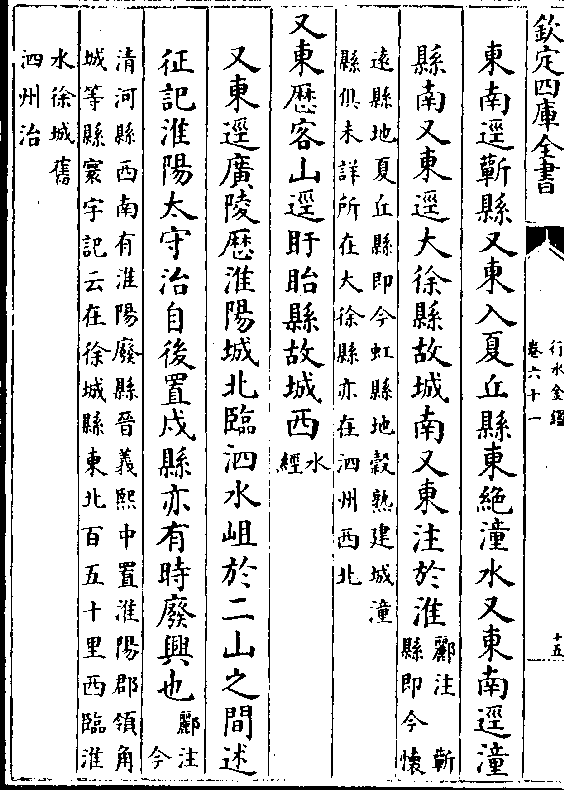 欽定四庫全書
行水金鑑
卷六十一
十五
東南逕蘄縣又東入夏丘縣東絶潼水又東南逕潼
縣南又東逕大徐縣故城南又東注於淮酈注 蘄縣即今懷
遠縣地夏丘縣即今虹縣地穀熟建城潼
縣俱未詳所在大徐縣亦在泗州西北
又東歴客山逕盱眙縣故城西水經
又東逕廣陵歴淮陽城北臨泗水岨於二山之間述
征記淮陽太守治自後置戍縣亦有時廢興也酈注 今
清河縣西南有淮陽廢縣晉義熙中置淮陽郡領角
城等縣寰宇記云在徐城縣東北百五十里西臨淮
水徐城舊
泗州治